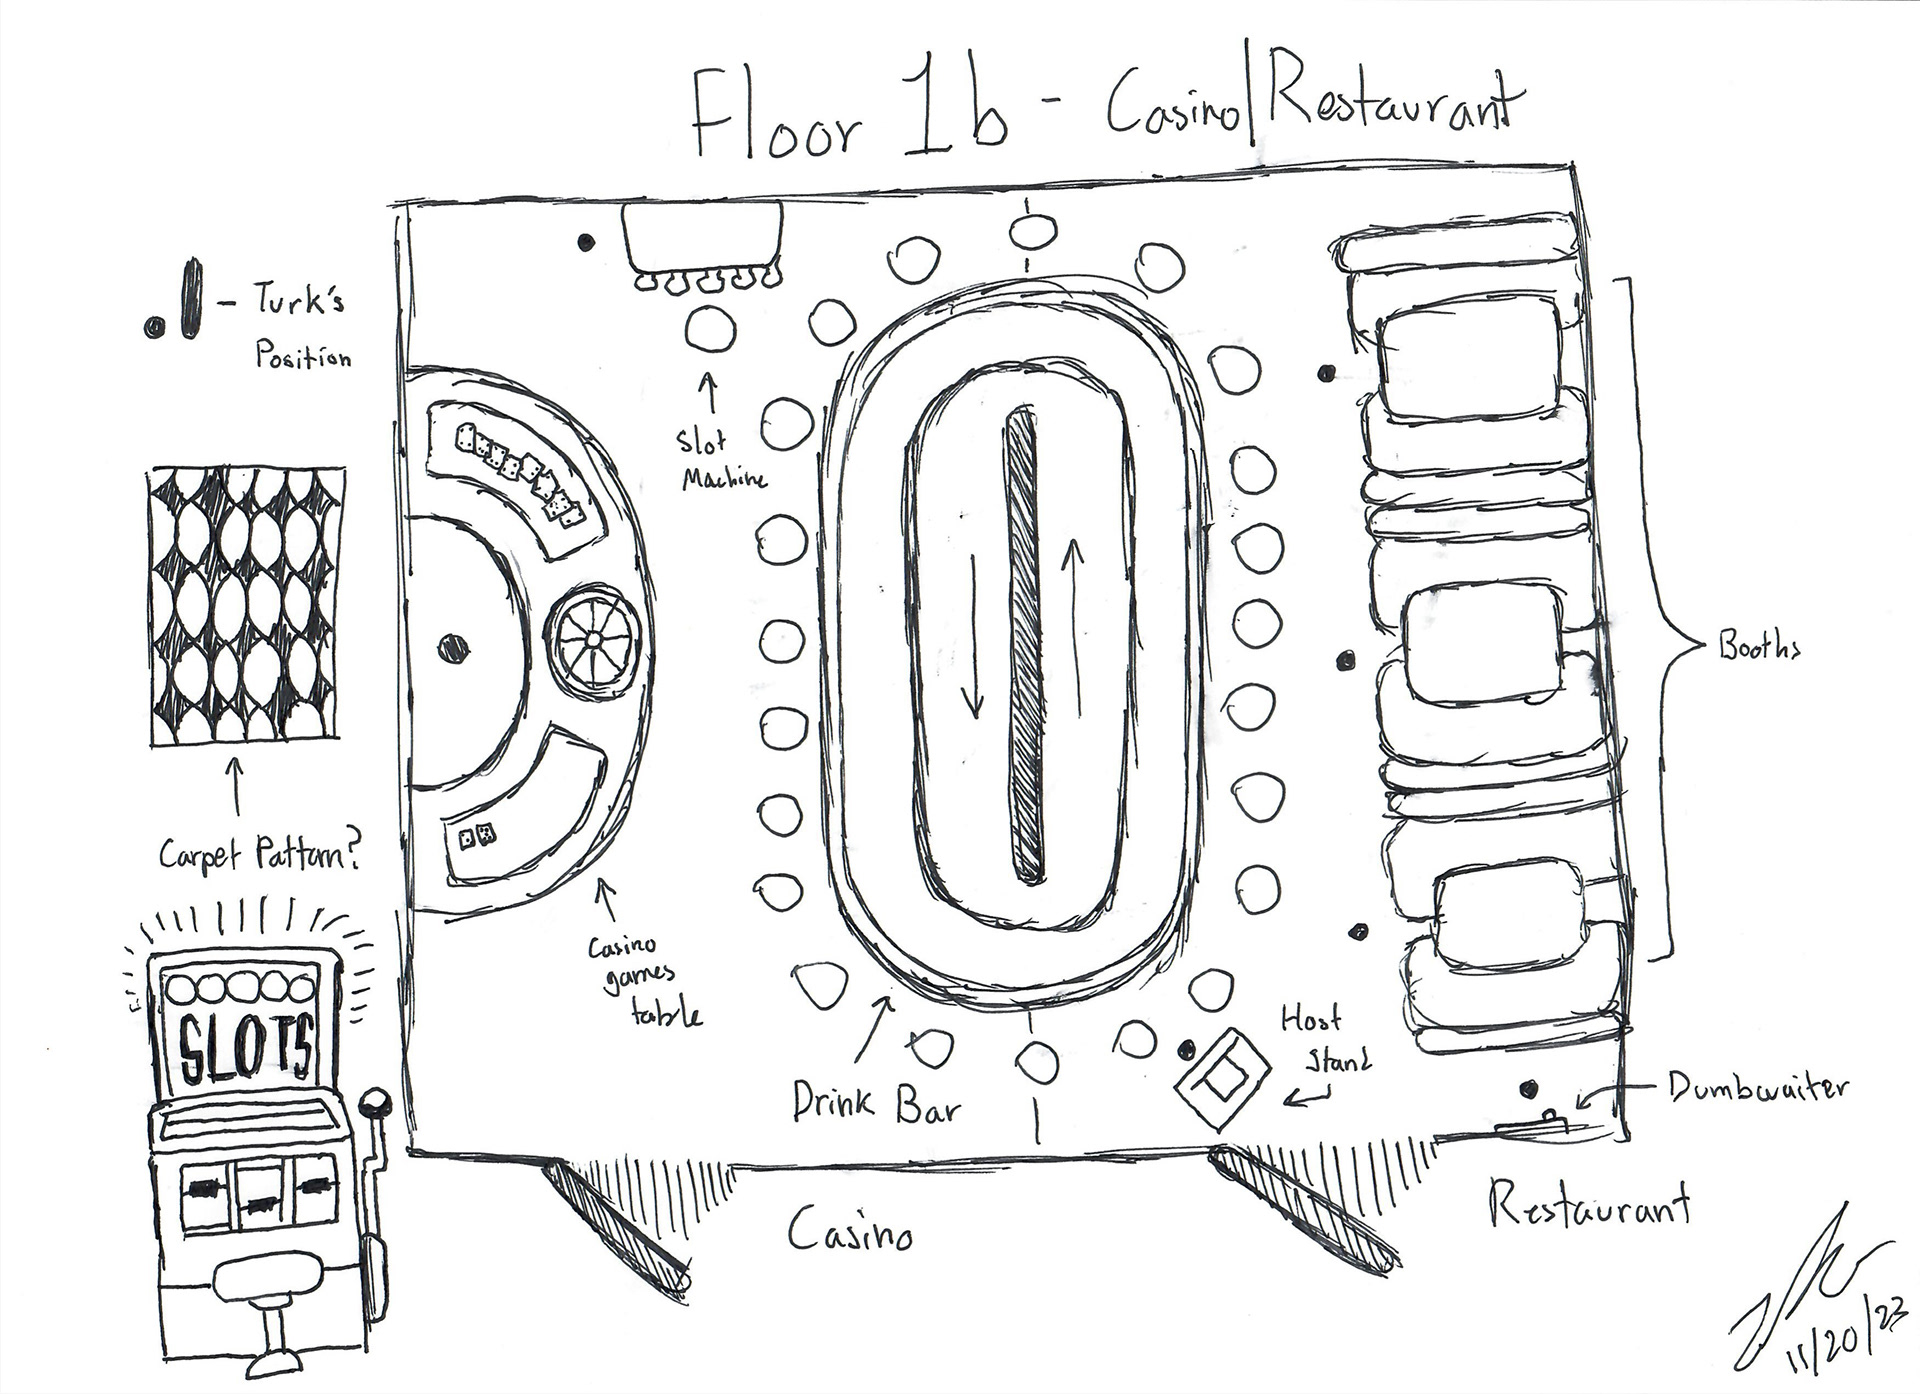 Floor 1b - Casino/Restaurant
- Turk's
Position
Slot
Machine
Booths
Carpet Pattern?
Casino
games
table
SLOTS
Drink Bar
Host
Stand
Dumbwaiter
Casino
Restaurant
11/20/23